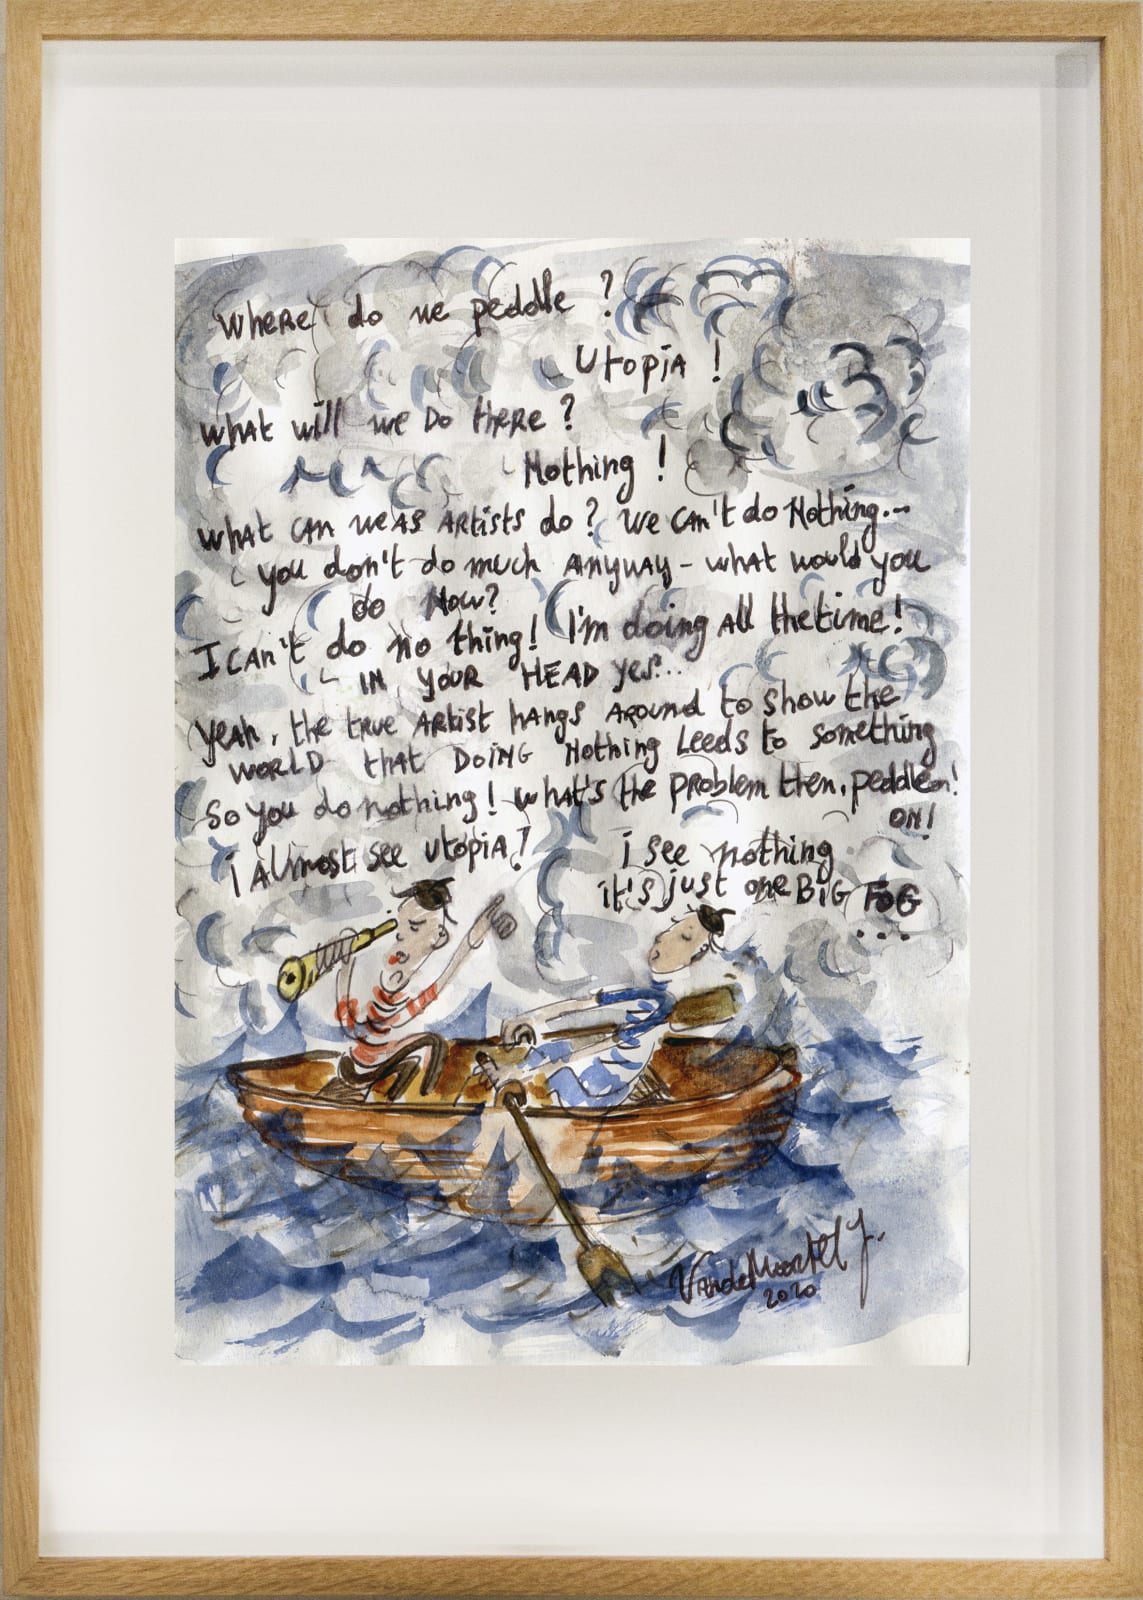 WHERE do we peddle ?
Utopia !
what will we Do there ?
Nothing !
what can we as Artists do ? We can't do Nothing...
you don't do much anyway - what would you
do Now?
I can't do no thing! I'm doing all the time!
IN YOUR HEAD yes...
Yeah, the true Artist hangs around to show the
WORLD that DOING Nothing Leeds to something
So you do nothing! what's the problem then, peddle
ON!
i Almost see utopia! i see nothing
it's just one BIG FOG
...
VandeMoortel J.
2020